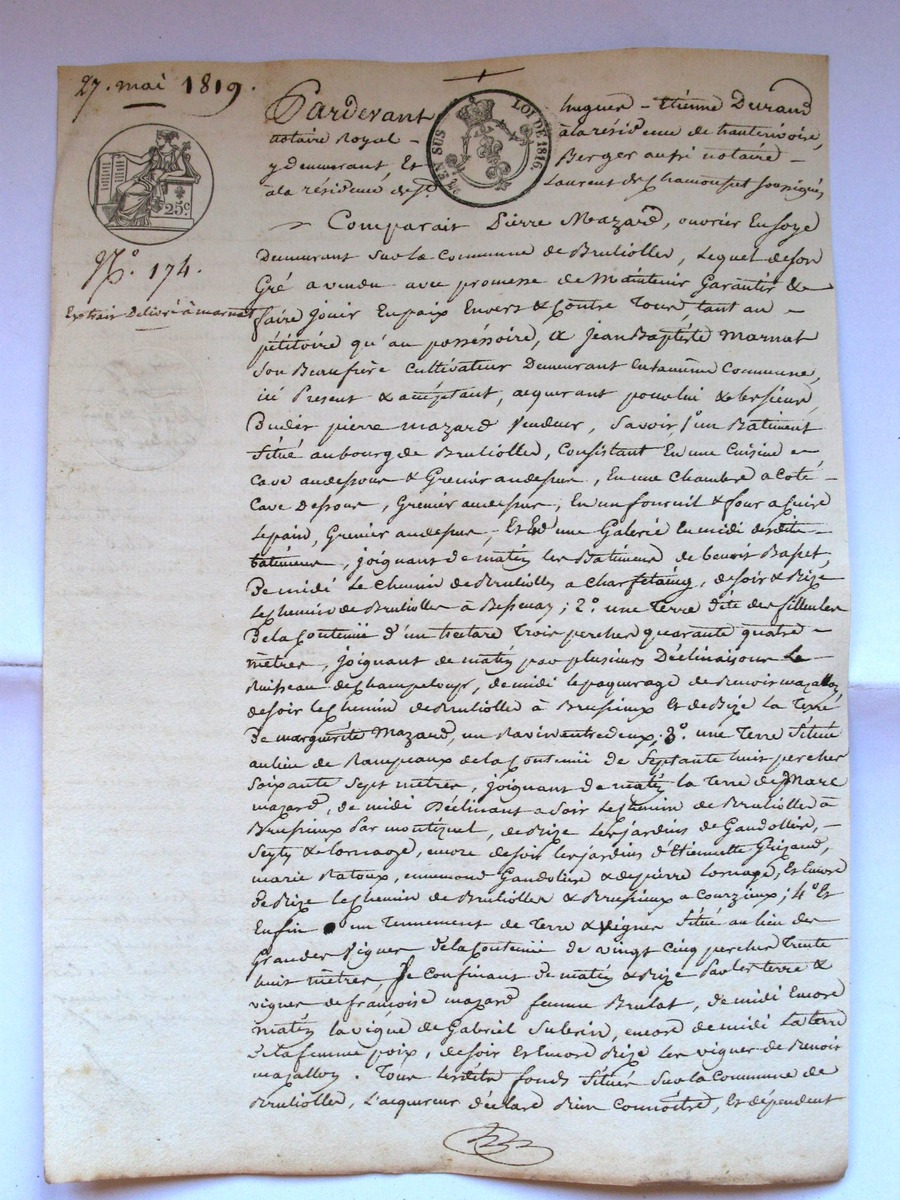 27. mai 1819.
EN SUS
LOI DE 1816.
25c
N.o 174.
Extrait Délivré à marnat
Pardevant hugues - Etienne Durand
notaire Royal - à la résidence de hauterivoire,
y demeurant Et Berger aussi notaire -
à la résidence de St. Laurent de Chamousset soussignés
Comparait Pierre Mazard, ouvrier En soye
Demeurant sur la Commune de Brullioles, Lequel de son
Gré a vendu avec promesse de Maintenir Garantir &
faire jouir En paix Envers & Contre Tous, tant au -
pétitoire qu'au possessoire, a Jean Baptiste Marnat
son Beaufrère Cultivateur Demeurant En la même Commune,
ici Present & acceptant, acquérant pour lui & les siens,
Dudit pierre mazard Vendeur, Savoir 1o un Batiment
Situé au bourg de Brullioles, Consistant En une Cuisine
Cave au dessous & Grenier au dessus, En une Chambre a Coté
Cave Dessous, Grenier au dessus, En un fournil & four a Cuire
Le pain, Grenier au dessus, Et d'une Galerie En midi desdits
batimens, joignant de matin les Batimens de benoit Basset,
De midi Le Chemin de Brullioles a , de soir & Bize
Le Chemin de Brullioles à Bessenay; 2o. une Terre dite des filleules
De la Contenue d'un hectare Trois perches quarante quatre -
mètres, joignant de matin par plusieurs Déclinaisons Le
Ruisseau de Champeloup, de midi le paquerage de Benoit mazallon,
de soir le Chemin de Brullioles à Brussieux Et de Bize la Terre
De marguerite Mazard, un Ravin entredeux, 3o. une Terre Située
au lieu de Rampeaux de la Contenue de Septante huit perches
Soixante Sept mètres, joignant de matin la Terre de Marc
mazard, de midi Déclinant a Soir Le chemin de Brullioles à
Brussieux par montiquet, de Bize les jardins de Gandoliere, -
Seyty & lornage, encore de soir les jardins d'Etiennette Grizaud,
marie Ratoux, Gandoliere & de pierre lornage, Et Encore
de Bize le Chemin de Brullioles & Brussieux a Courzieux; 4o Et
Enfin un Tennement de Terre & Vignes Situé au lieu des
Grandes Vignes de la Contenue de vingt cinq perches Trente
huit mètres, Se confinant de matin & Bize par les terre &
vignes de françoise mazard femme Brulat, de midi Encore
matin la vigne de Gabriel Suberin, encore de midi La terre
de la femme poix, de soir Et Encore Bize les vignes de Benoit
mazallon. Tous lesdits fonds Situés Sur la Commune de
Brullioles, L'acquereur déclare Bien Connoitre, Et dépendent